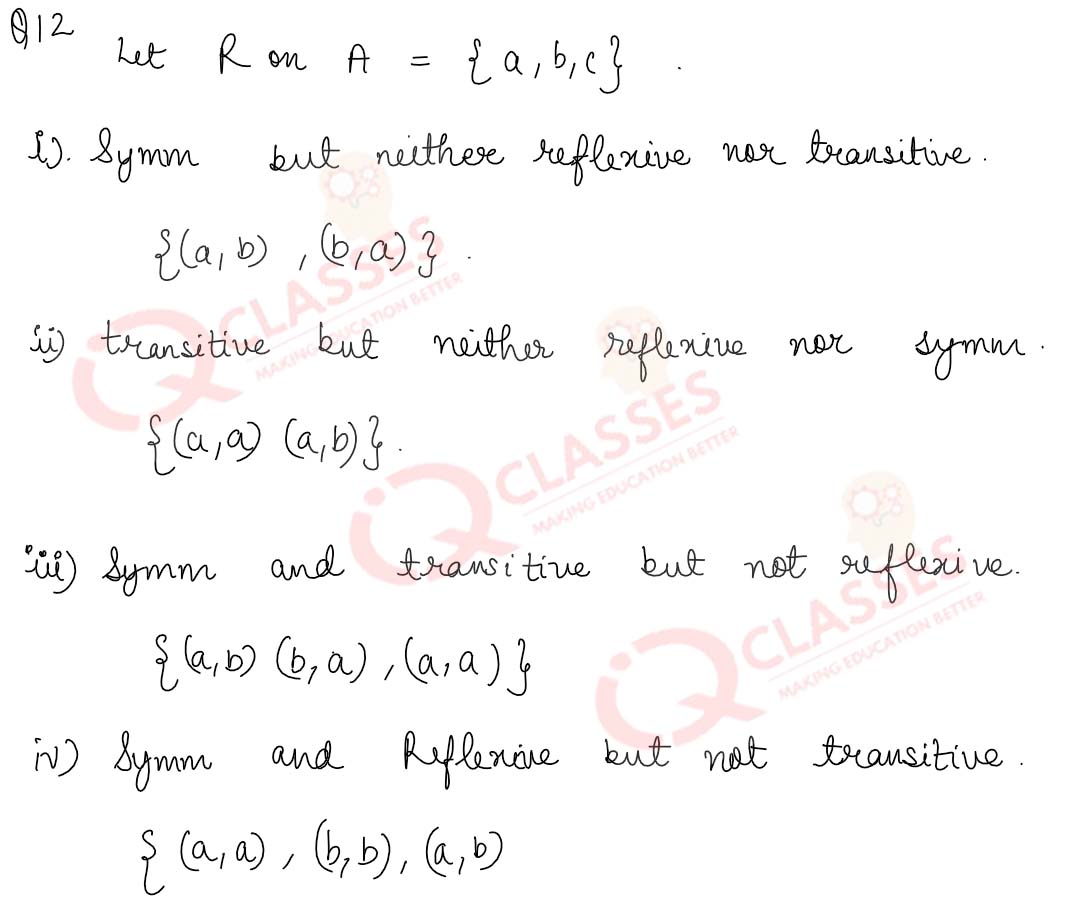 Q12
Let R on A = {a,b,c} .
i). Symm but neither reflexive nor transitive.
{(a,b) ,(b,a)} .
ii) transitive but neither reflexive nor symm.
{(a,a) (a,b)}.
iii) Symm and transitive but not reflexive.
{(a,b) (b,a) ,(a,a)}
iv) Symm and Reflexive but not transitive.
{ (a,a) , (b,b), (a,b)
IQ CLASSES
MAKING EDUCATION BETTER
IQ CLASSES
MAKING EDUCATION BETTER
IQ CLASSES
MAKING EDUCATION BETTER